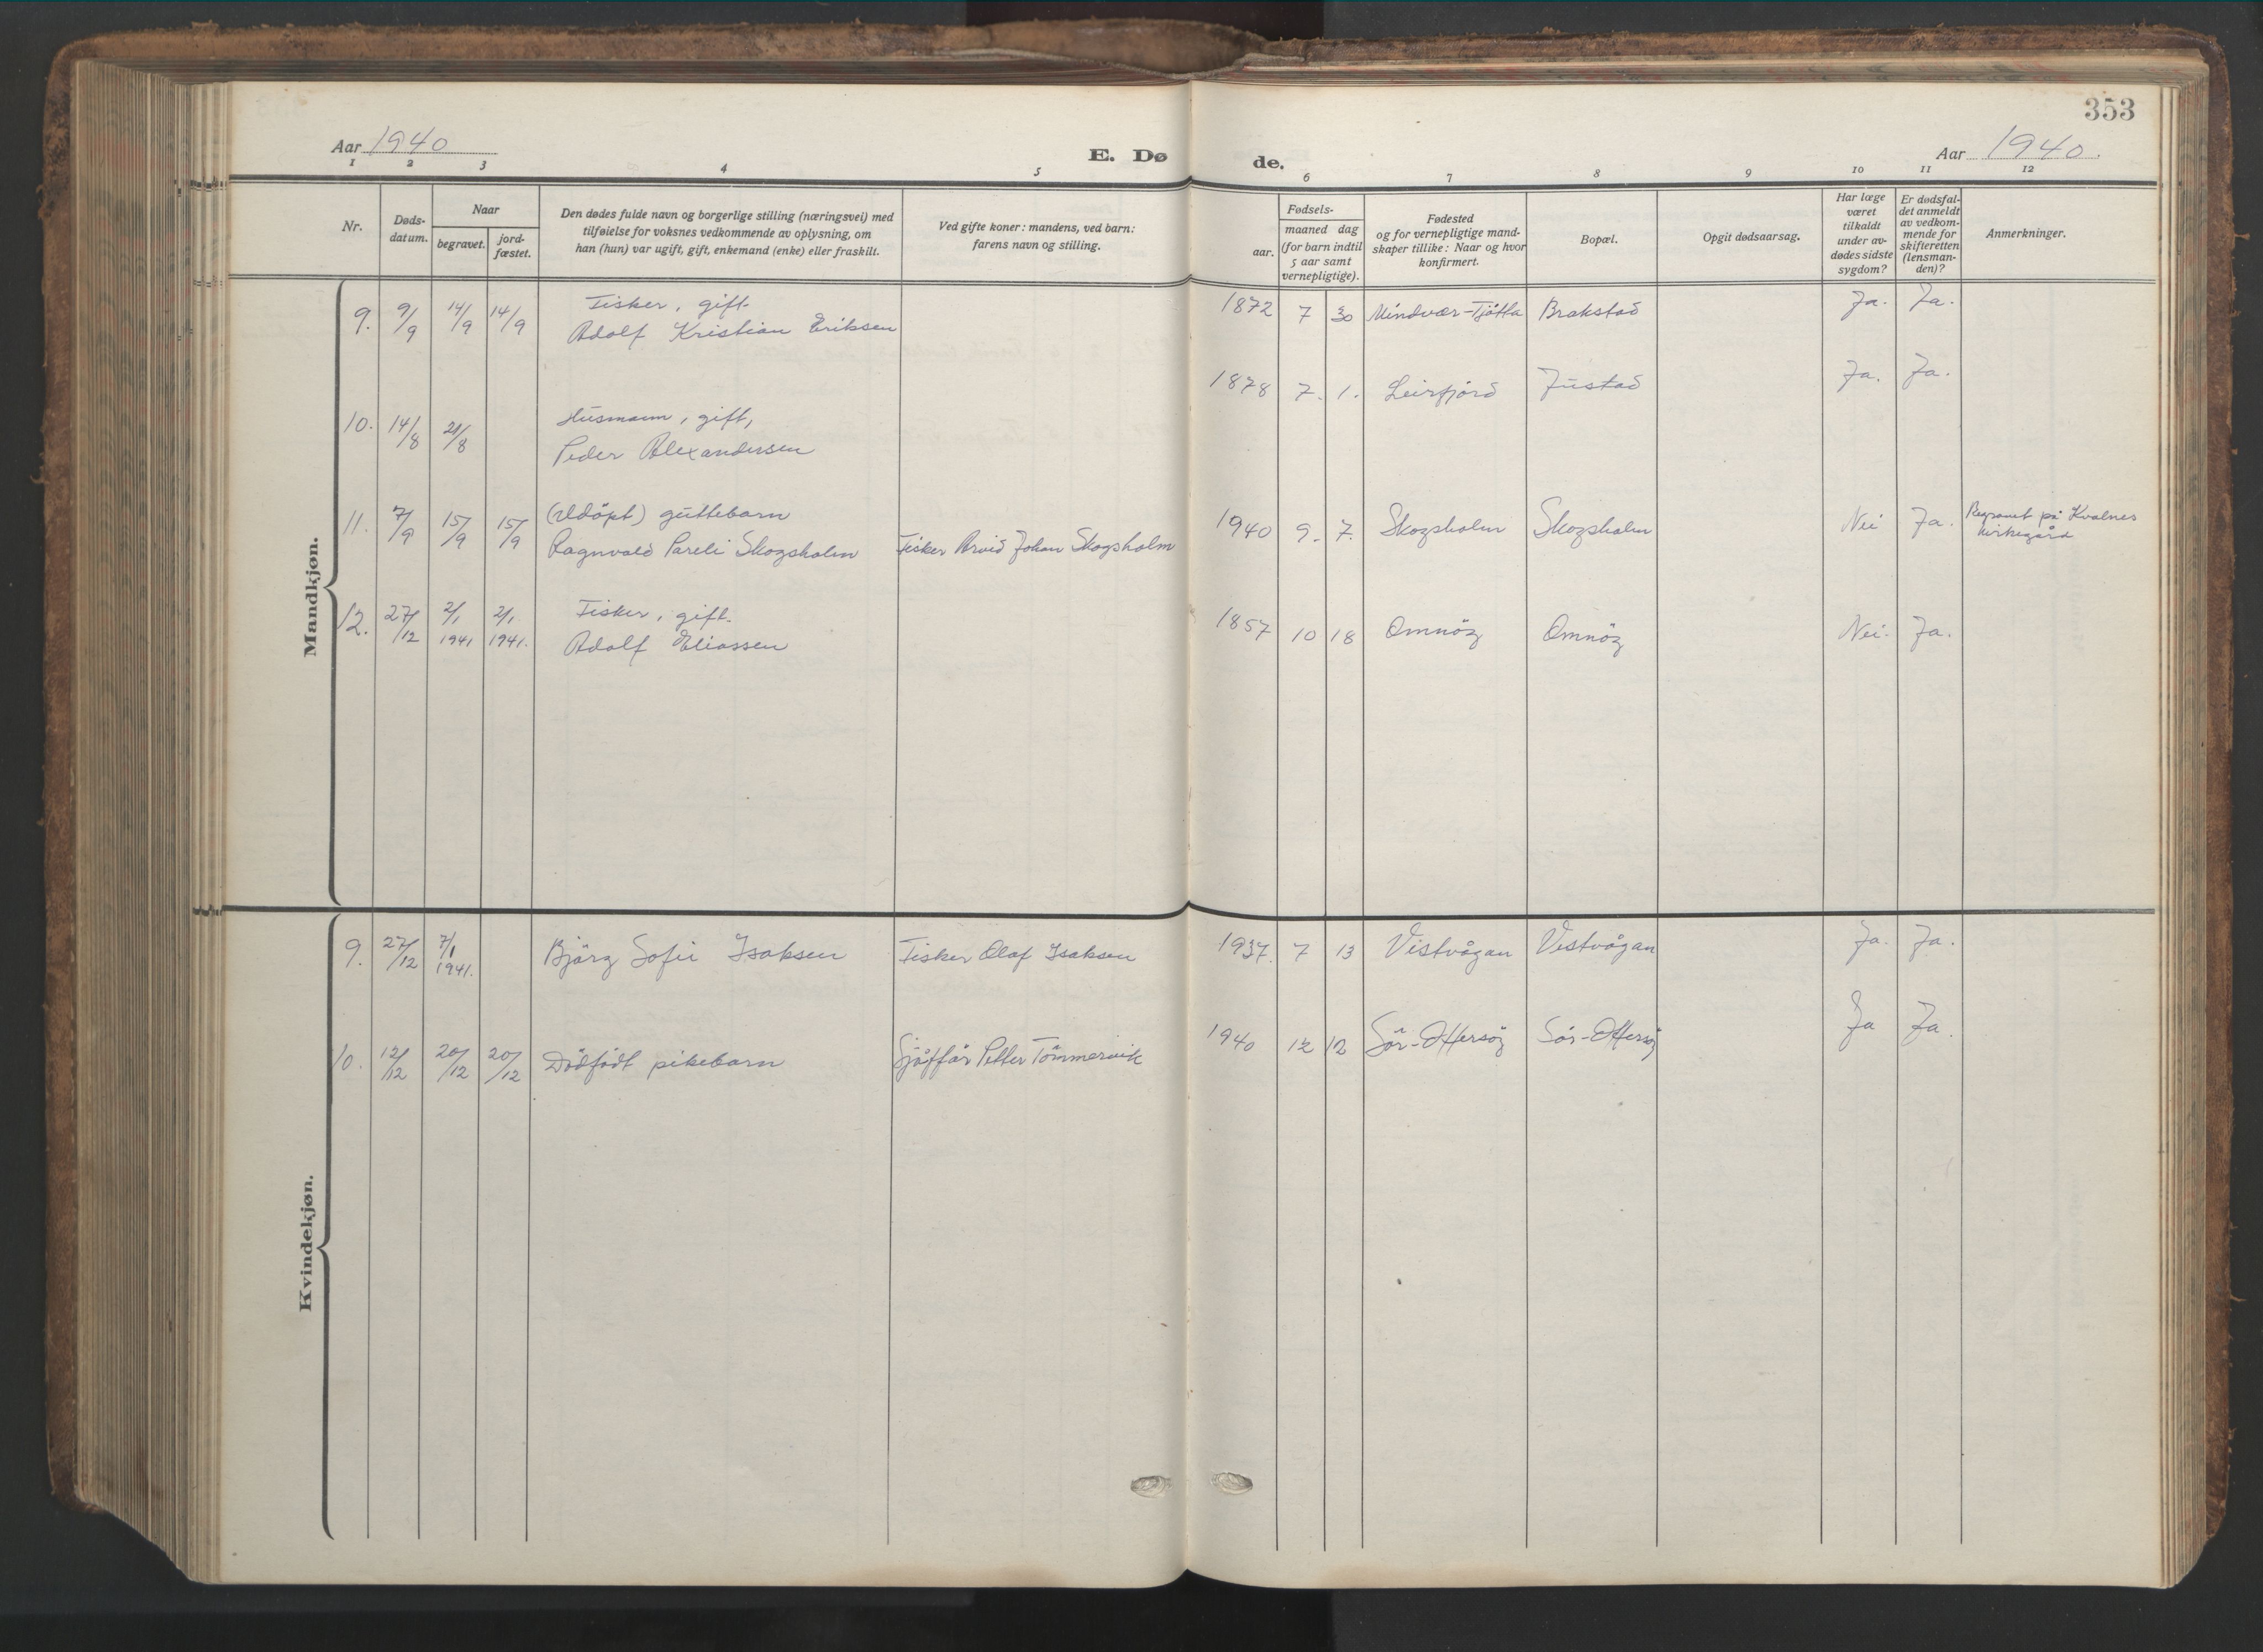 353
Aar 1940
E. Dø
de.
Aar 1940.
1 2 3 4 5 6 7 8 9 10 11 12
Nr.
Døds-
datum.
Naar
begravet.
jord-
fæstet.
Den dødes fulde navn og borgerlige stilling (næringsvei) med
tilføielse for voksnes vedkommende av oplysning, om
han (hun) var ugift, gift, enkemand (enke) eller fraskilt.
Ved gifte koner: mandens, ved barn:
farens navn og stilling.
Fødsels-
aar.
maaned dag
(for barn indtil
5 aar samt
vernepligtige).
Fødested
og for vernepligtige mand-
skaper tillike: Naar og hvor
konfirmert.
Bopæl.
Opgit dødsaarsag.
Har læge
været
tilkaldt
under av-
dødes sidste
sygdom?
Er dødsfal-
det anmeldt
av vedkom-
mende for
skifteretten
(lensman-
den)?
Anmerkninger.
Mandkjøn.
9. 9/9 14/9 14/9 Fisker, gift.
Adolf Kristian Eriksen
1872 7 30 Mindvær-Tjötta Brakstad Ja. Ja.
10. 14/8 21/8 Husmann, gift,
Peder Alexandersen
1878 7. 1. Leirfjord Justad Ja. Ja.
11. 7/9 15/9 15/9 (Udöpt) guttebarn
Ragnvald Pareli Skogsholm Fisker Arvid Johan Skogsholm
1940 9. 7. Skogsholm Skogsholm Nei Ja. Begravet på Kvalnes
kirkegård
12. 27/12 2/1 1941 2/1 1941. Fisker, gift.
Adolf Eliassen
1857 10 18 Omnöy Omnöy Nei. Ja.
Kvindekjøn.
9. 27/12 7/1 1941. Björg Sofie Isaksen Fisker Olaf Isaksen 1937. 7 13 Vistvågan Vistvågan Ja. Ja.
10. 12/12 20/12 20/12 Dödfödt pikebarn Sjåfför Petter Tömmervik 1940 12 12 Sör-Offersöy Sör-Offersöy Ja Ja.